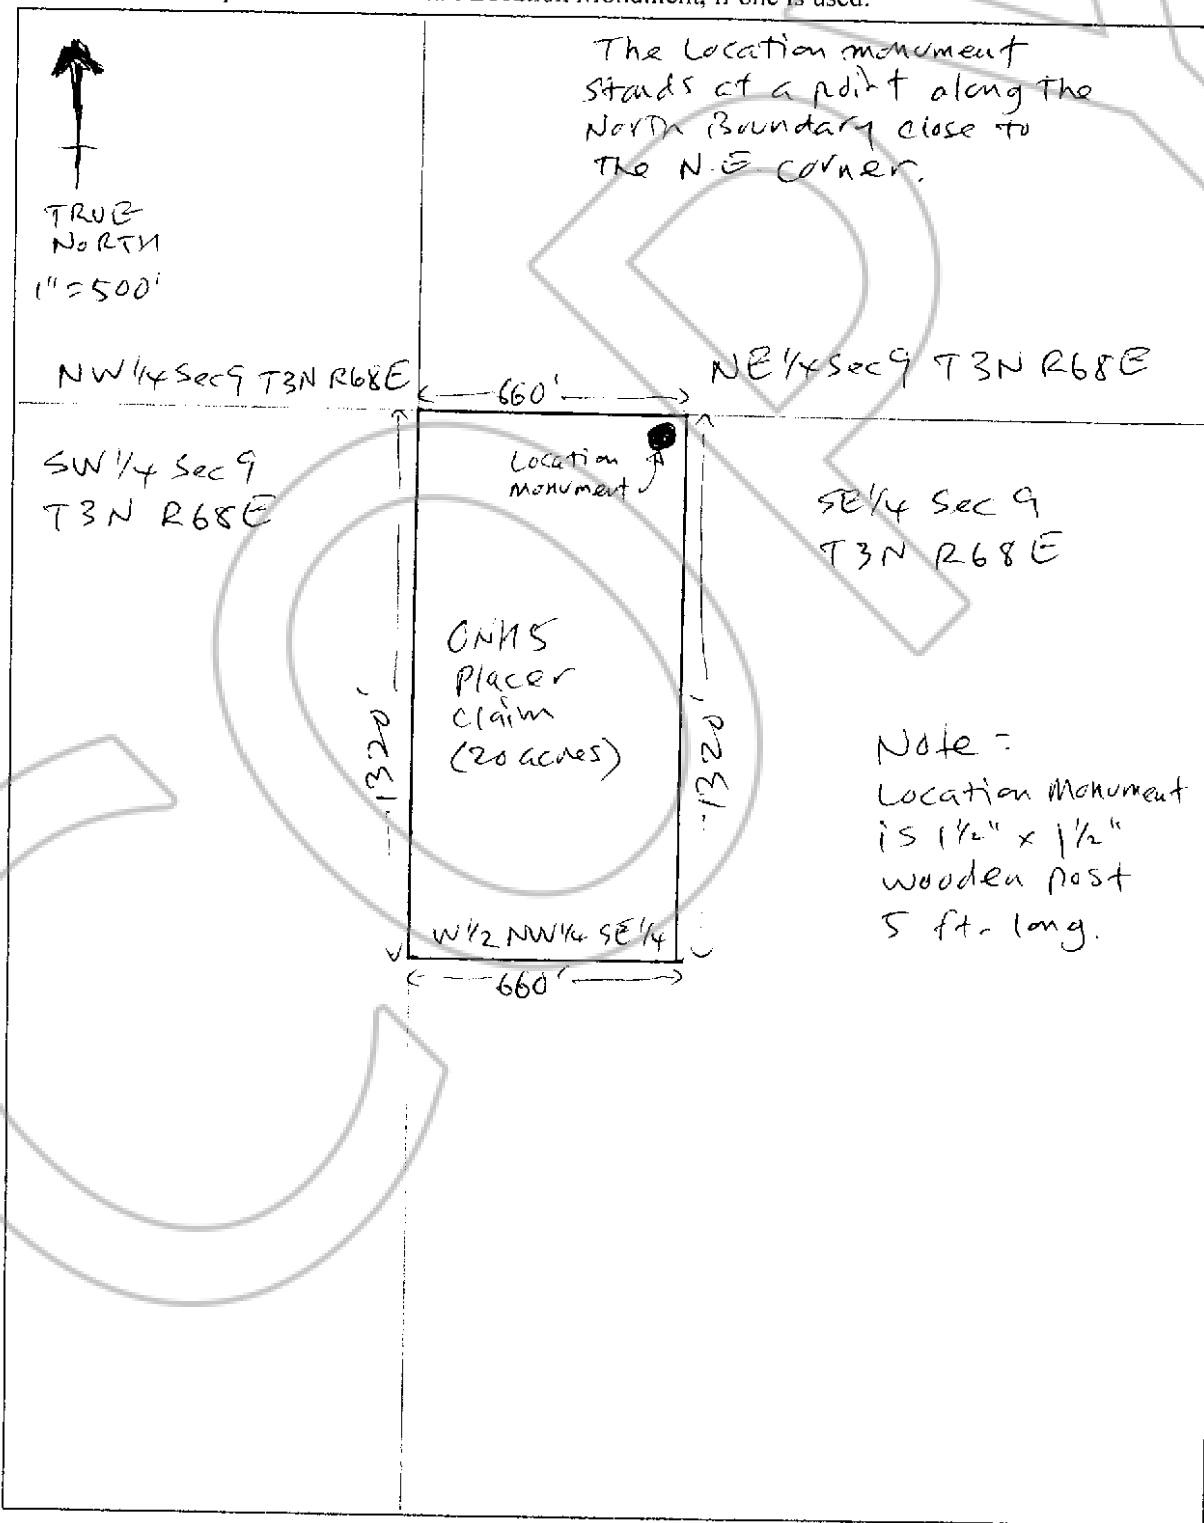 Location Monument, if one is used.
The Location monument
stands at a point along the
North Boundary close to
The N.E. corner.
TRUE
NORTH
1"=500'
NW 1/4 Sec 9 T3N R68E
NE 1/4 Sec 9 T3N R68E
660'
SW 1/4 Sec 9
T3N R68E
Location
monument
SE 1/4 Sec 9
T3N R68E
Placer
claim
(20 acres)
1320'
1320'
Note -
Location Monument
is 1 1/2" x 1 1/2"
wooden post
5 ft. long.
W 1/2 NW 1/4 SE 1/4
660'
COPY